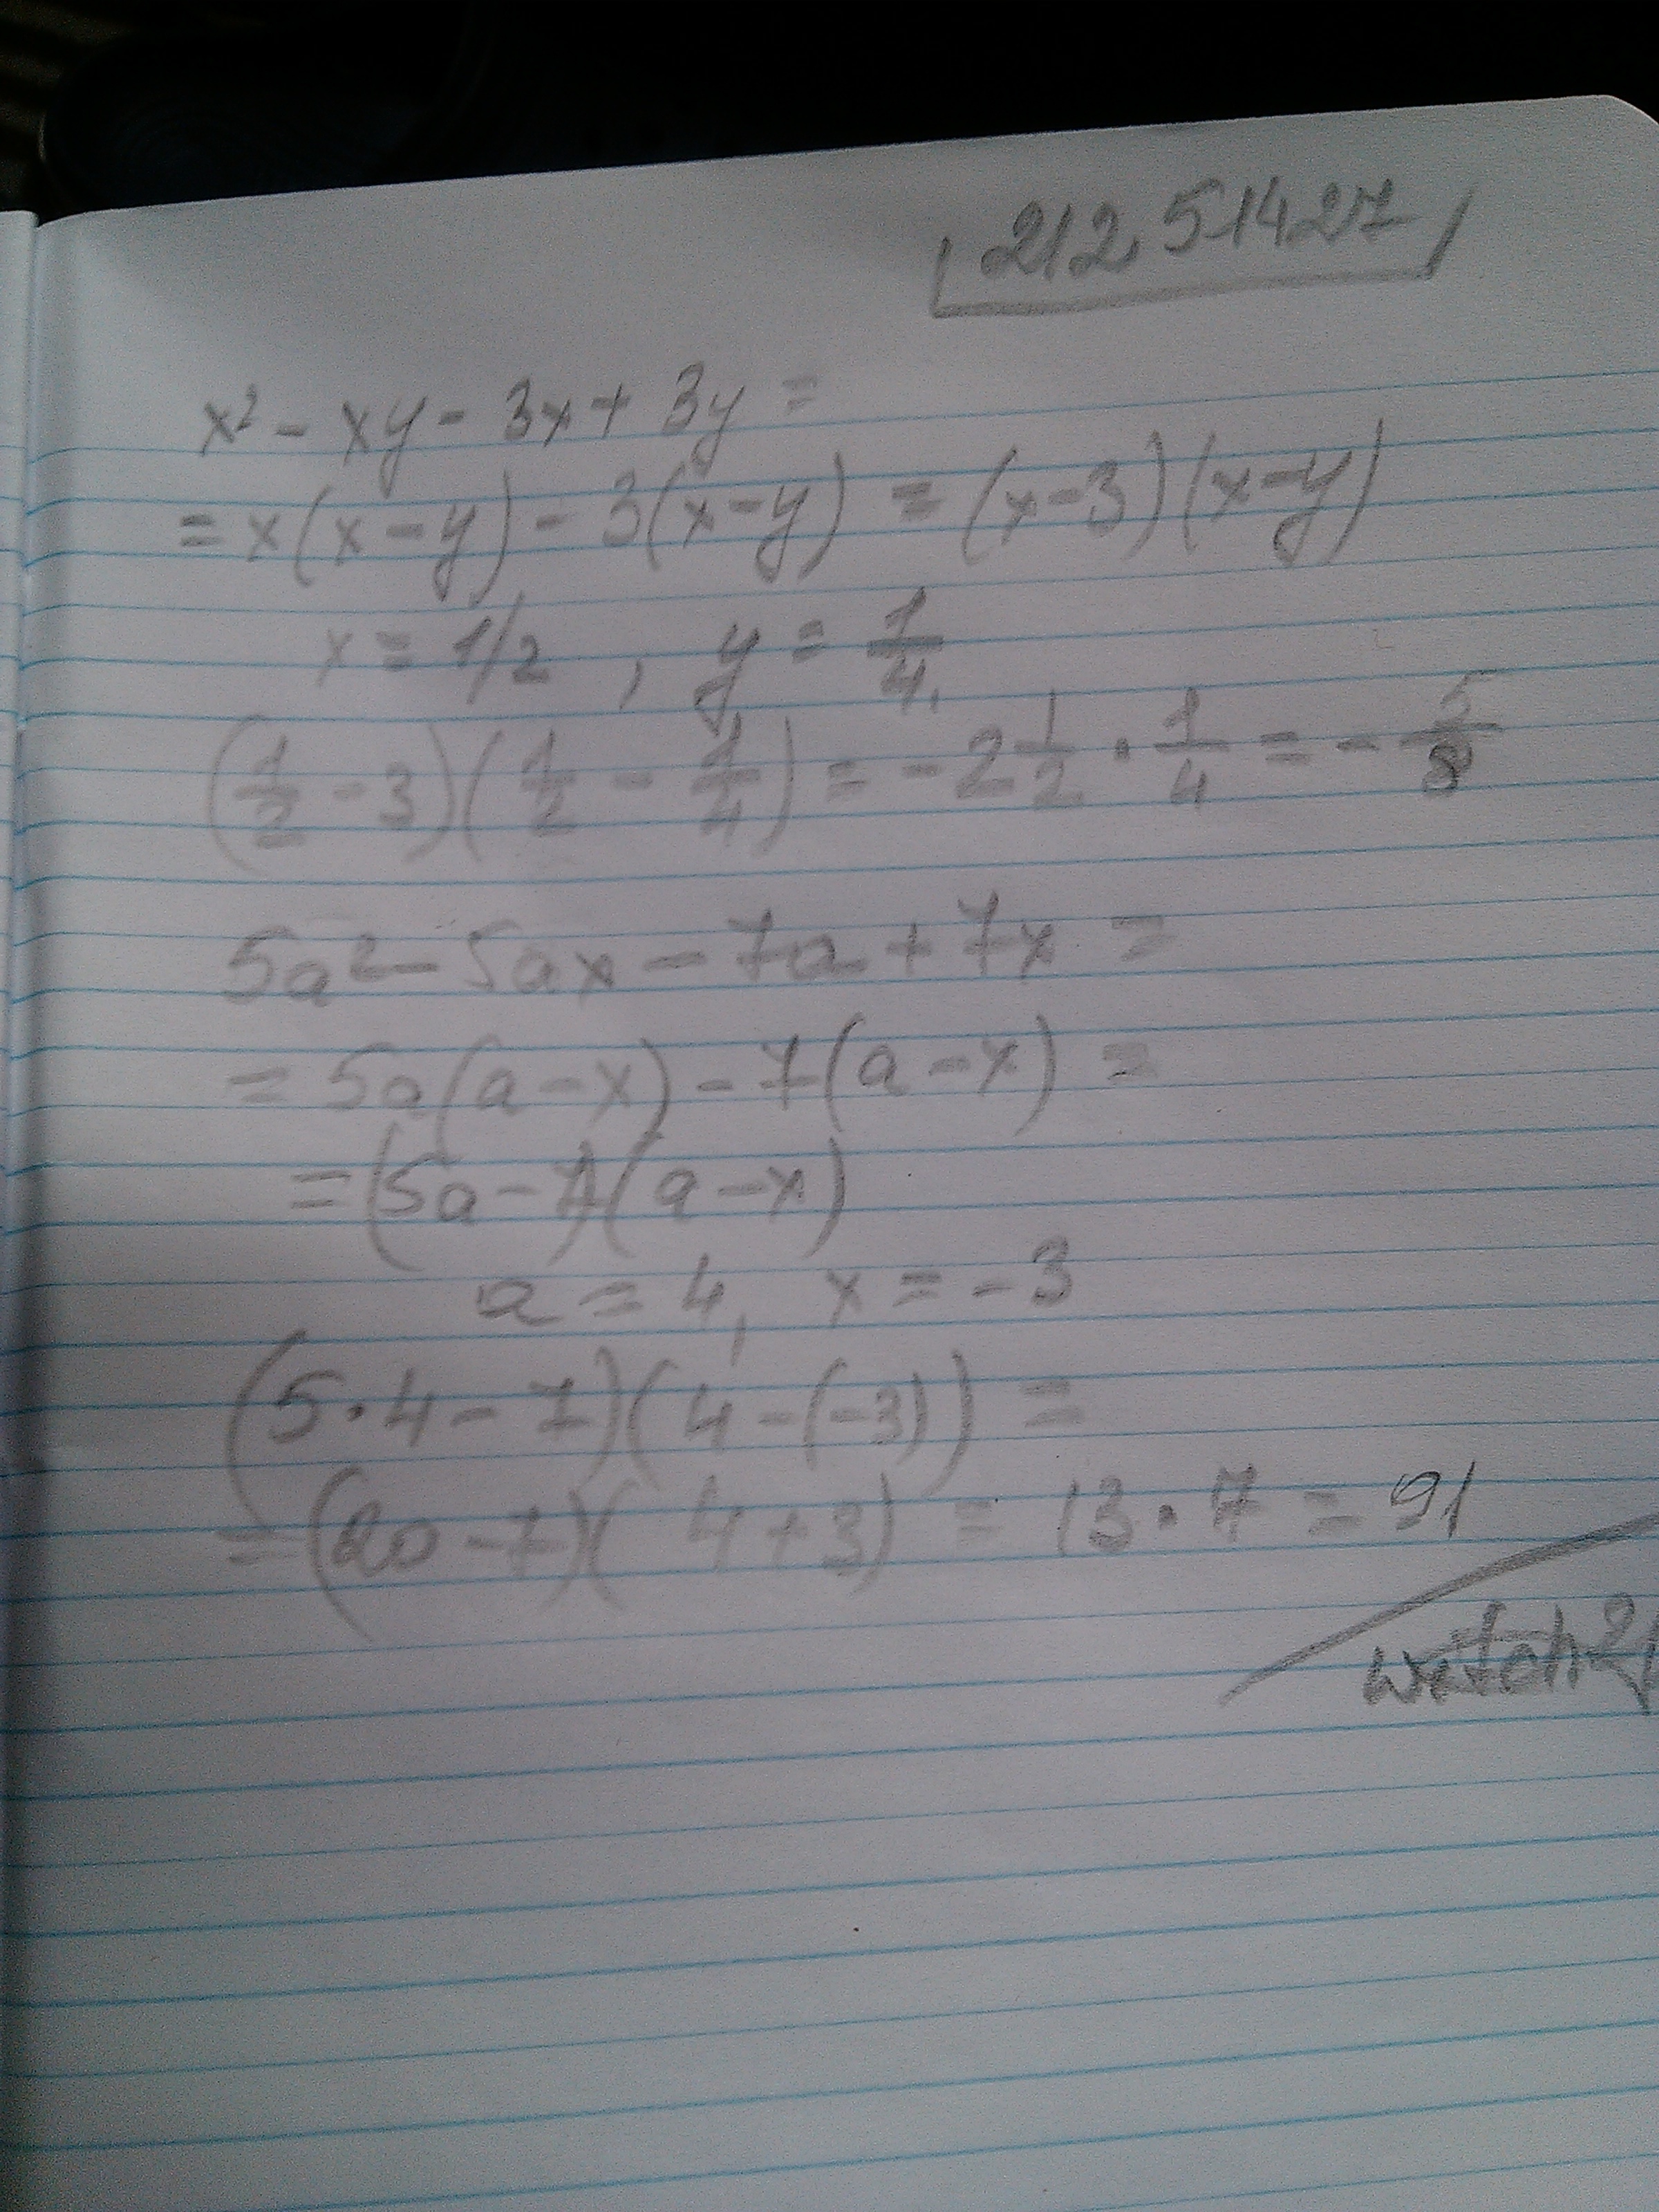 21251427
x² - xy - 3x + 3y =
= x(x-y) - 3(x-y) = (x-3)(x-y)
x = 1/2 , y = 1/4.
(1/2 - 3)(1/2 - 1/4) = -2 1/2 · 1/4 = - 5/8
5a² - 5ax - 7a + 7x =
= 5a(a-x) - 7(a-x) =
= (5a-7)(a-x)
a = 4, x = -3
(5·4-7)(4-(-3)) =
= (20-7)(4+3) = 13·7 = 91
witch21